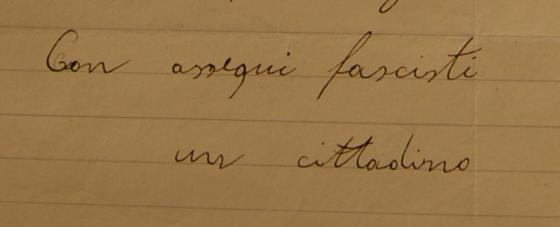 Con ossequi fascisti
un cittadino